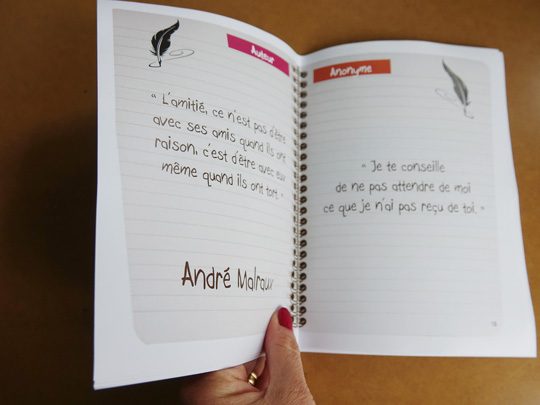 Auteur
“ L'amitié, ce n'est pas d'être
avec ses amis quand ils ont
raison, c'est d'être avec eux
même quand ils ont tort. ”
André Malraux
Anonyme
“ Je te conseille
de ne pas attendre de moi
ce que je n'ai pas reçu de toi. ”